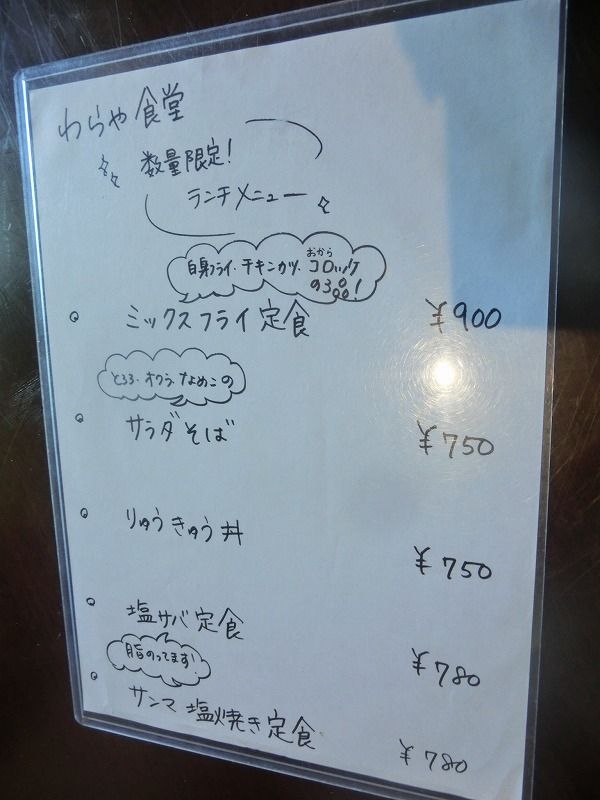 わらや食堂
数量限定!
ランチメニュー
白身フライ・チキンカツ・コロッケ
おから
の3つ!
ミックスフライ定食 ¥900
とろろ・オクラ・なめこの
サラダそば ¥750
りゅうきゅう丼 ¥750
塩サバ定食 ¥780
脂のってます!
サンマ塩焼き定食 ¥780